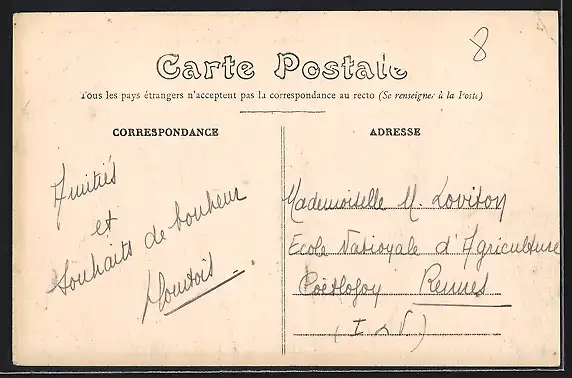 8
Carte Postale
Tous les pays étrangers n'acceptent pas la correspondance au recto (Se renseigner à la Poste)
CORRESPONDANCE
ADRESSE
Amitiés
et
Souhaits de bonheur
Mademoiselle M. Loviton
Ecole Nationale d'Agriculture
Coëtlogon Rennes
(I &V.)